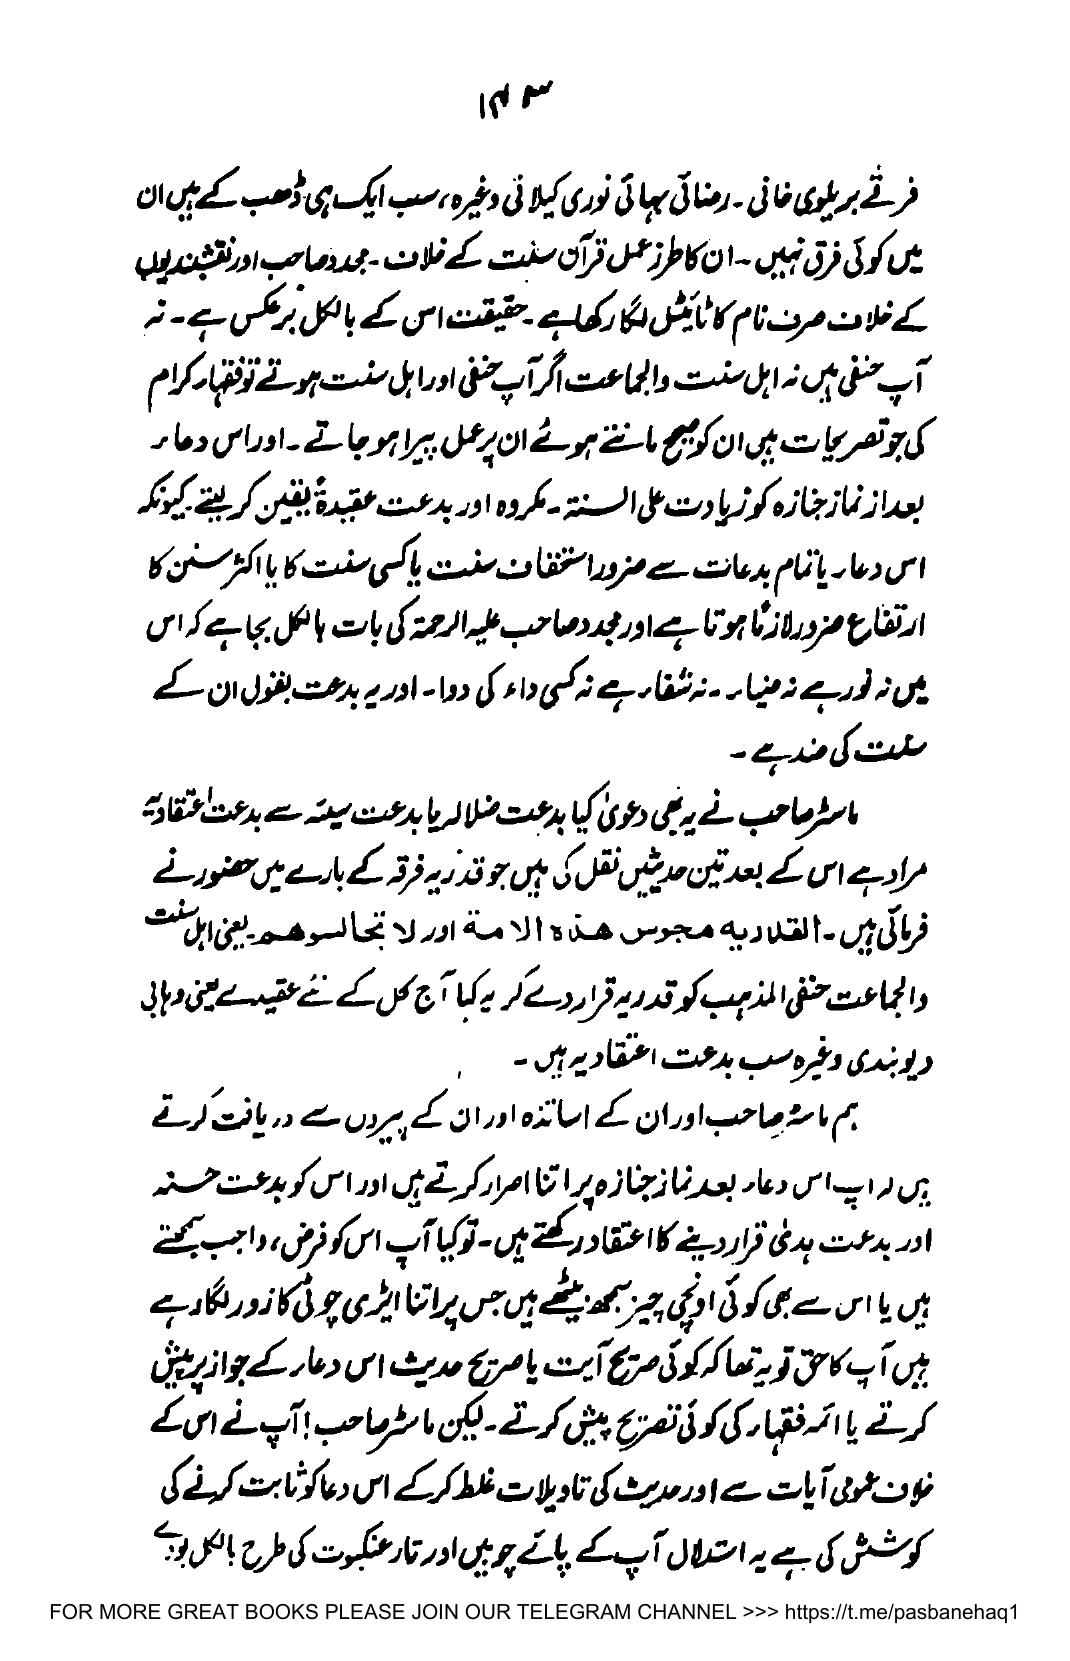 ۱۴۳
فرقے بریلوی خانی ۔ رضائی بہائی نوری گیلانی وغیرہ، سب ایک ہی ڈھب کے ہیں ان
میں کوئی فرق نہیں ۔ ان کا طرز عمل قرآن سنت کے خلاف ۔ مجدد صاحب اور نقشبندیوں
کے خلاف صرف نام کا ٹائیٹل لگا رکھا ہے ۔ حقیقت اس کے بالکل برعکس ہے ۔ نہ
آپ حنفی ہیں نہ اہل سنت والجماعت اگر آپ حنفی اور اہل سنت ہوتے تو فقہاء کرام
کی جو تصریحات ہیں ان کو صحیح مانتے ہوئے ان پر عمل پیرا ہو جاتے ۔ اور اس دعاء
بعد از نماز جنازہ کو زیادت علی السنۃ ۔ مکروہ اور بدعت عقیدۃً یقین کر لیتے ۔ کیونکہ
اس دعاء یا تمام بدعات سے ضرور استخفاف سنت یا کسی سنت کا یا اکثر سنن کا
ارتفاع ضرور لازمًا ہوتا ہے اور مجدد صاحب علیہ الرحمۃ کی بات بالکل بجا ہے کہ اس
میں نہ نور ہے نہ ضیاء ۔ نہ شفاء ہے نہ کسی داء کی دوا ۔ اور یہ بدعت بقول ان کے
سنت کی ضد ہے ۔
ماسٹر صاحب نے یہ بھی دعویٰ کیا بدعت ضلالہ یا بدعت سیئہ سے بدعت اعتقادیہ
مراد ہے اس کے بعد تین حدیثیں نقل کی ہیں جو قدریہ فرقہ کے بارے میں حضور نے
فرمائی ہیں ۔ القدریہ مجوس ھذہ الامۃ اور لا تجالسوھم ۔ یعنی اہل سنت
والجماعت حنفی المذہب کو قدریہ قرار دے کر یہ کہا آج کل کے نئے عقیدے یعنی وہابی
دیوبندی وغیرہ سب بدعت اعتقادیہ ہیں ۔
ہم ماسٹر صاحب اور ان کے اساتذہ اور ان کے پیروں سے دریافت کرتے
ہیں کہ آپ اس دعاء بعد نماز جنازہ پر اتنا اصرار کرتے ہیں اور اس کو بدعت حسنہ
اور بدعت ہدیٰ قرار دینے کا اعتقاد رکھتے ہیں ۔ تو کیا آپ اس کو فرض، واجب سمجھتے
ہیں یا اس سے بھی کوئی اونچی چیز سمجھ بیٹھے ہیں جس پر اتنا ایڑی چوٹی کا زور لگا رہے
ہیں آپ کا حق تو یہ تھا کہ کوئی صریح آیت یا صریح حدیث اس دعاء کے جواز پر پیش
کرتے یا ائمہ فقہاء کی کوئی تصریح پیش کرتے ۔ لیکن ماسٹر صاحب! آپ نے اس کے
خلاف عمومی آیات سے اور حدیث کی تاویلات غلط کر کے اس دعا کو ثابت کرنے کی
کوشش کی ہے یہ استدلال آپ کے پائے چوبیں اور تار عنکبوت کی طرح بالکل بودے
FOR MORE GREAT BOOKS PLEASE JOIN OUR TELEGRAM CHANNEL >>> https://t.me/pasbanehaq1